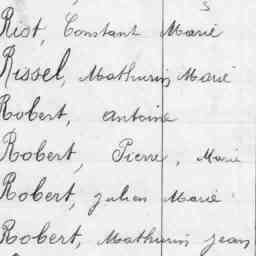 Rist, Constant Marie
Rissel, Mathurin Marie
Robert, Antoine
Robert, Pierre, Marie
Robert, Julien Marie
Robert, Mathurin Jean